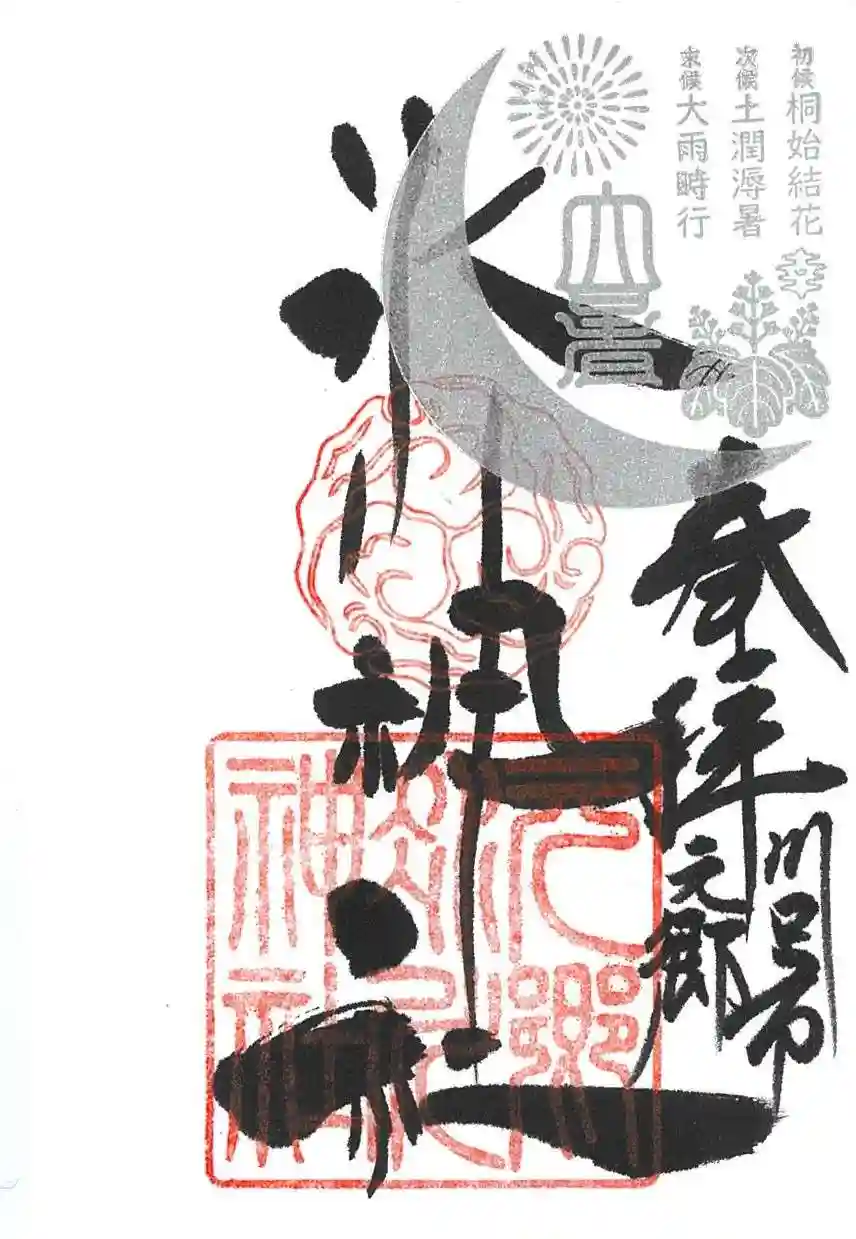 初候 桐始結花
次候 土潤溽暑
末候 大雨時行
大暑
奉拝
川口市
元郷
氷川神社
元郷
氷川
神社